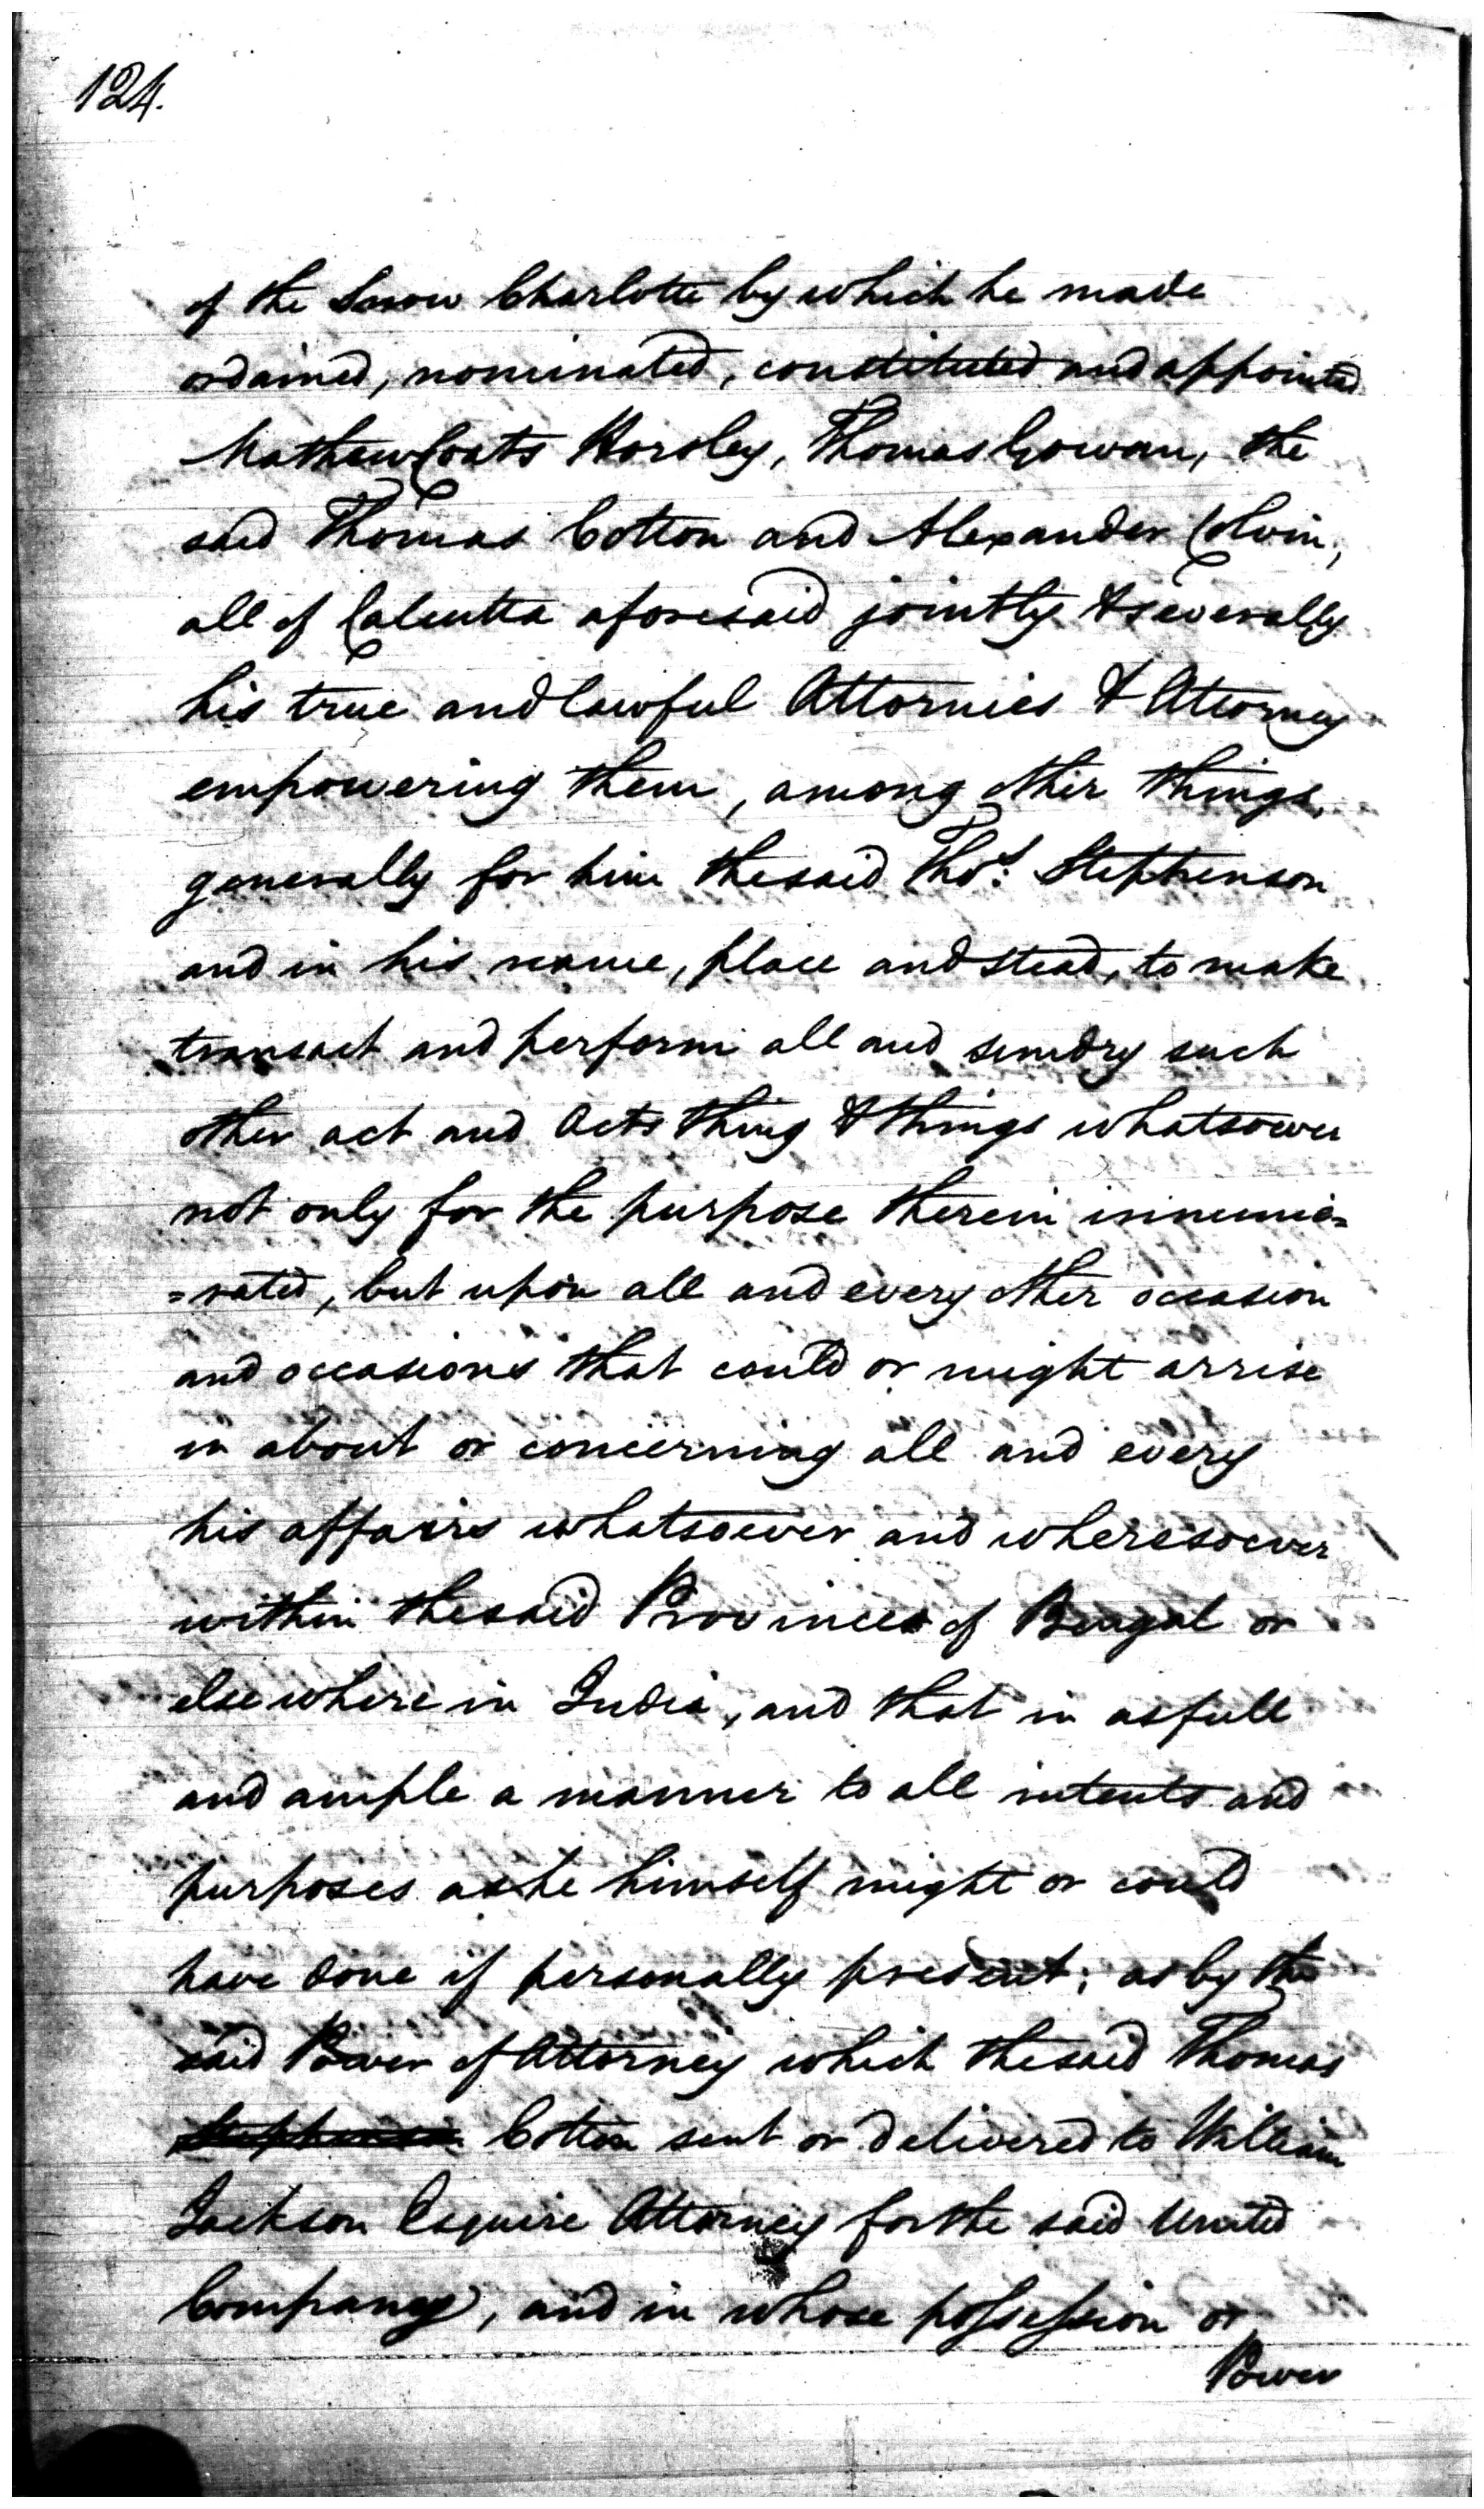 124.
of the Snow Charlotte by which he made
ordained, nominated, constituted and appointed
Mathew Coats Horsley, Thomas Gowan, the
said Thomas Cotton and Alexander Colvin,
all of Calcutta aforesaid jointly & severally
his true and lawful Attornies & Attorney
empowering them, among other things,
generally for him the said Thos. Stephenson
and in his name, place and stead, to make
transact and perform all and sundry such
other act and Acts thing & things whatsoever
not only for the purpose therein innume=
=rated, but upon all and every other occasion
and occasions that could or might arrise
in about or concerning all and every
his affairs whatsoever and wheresoever
within the said Provinces of Bengal or
elsewhere in India, and that in as full
and ample a manner to all intents and
purposes as he himself might or could
have done if personally present; as by the
said Power of Attorney which the said Thomas
Stephenson Cotton sent or delivered to William
Jackson Esquire Attorney for the said United
Company, and in whose possession or
Power